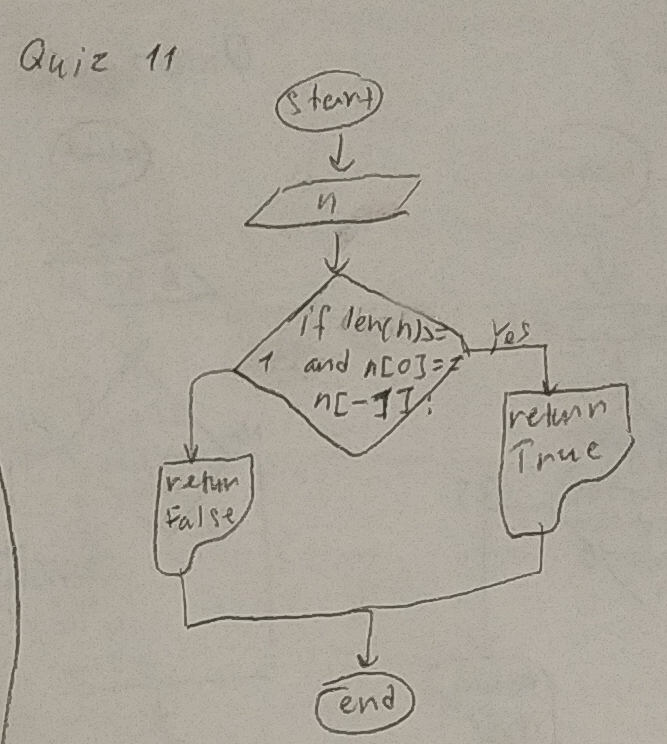 Quiz 11
start
n
if len(n)>=
1 and n[0]==
n[-1]:
Yes
return
True
retur
False
end